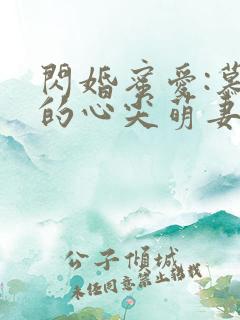 閃婚蜜愛:慕
的心尖萌妻
公子傾城
未經同意禁止轉載